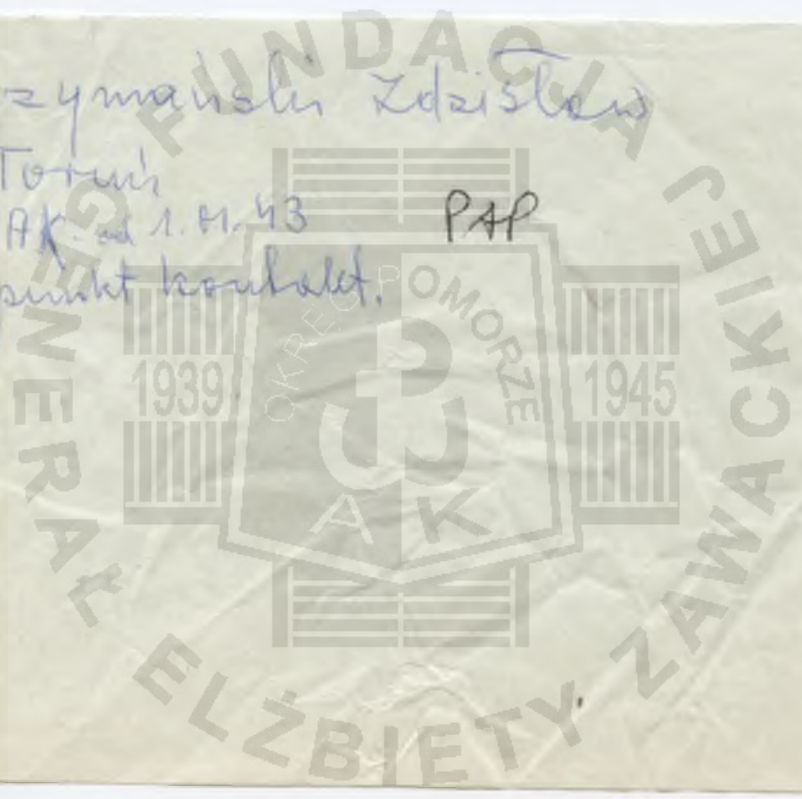 zymański Zdzisław
Toruń
AK - od 1.01.43 PAP
punkt kontakt.
FUNDACJA
GENERAŁ ELŻBIETY ZAWACKIEJ
OKRĘG POMORZE
1939 1945
AK